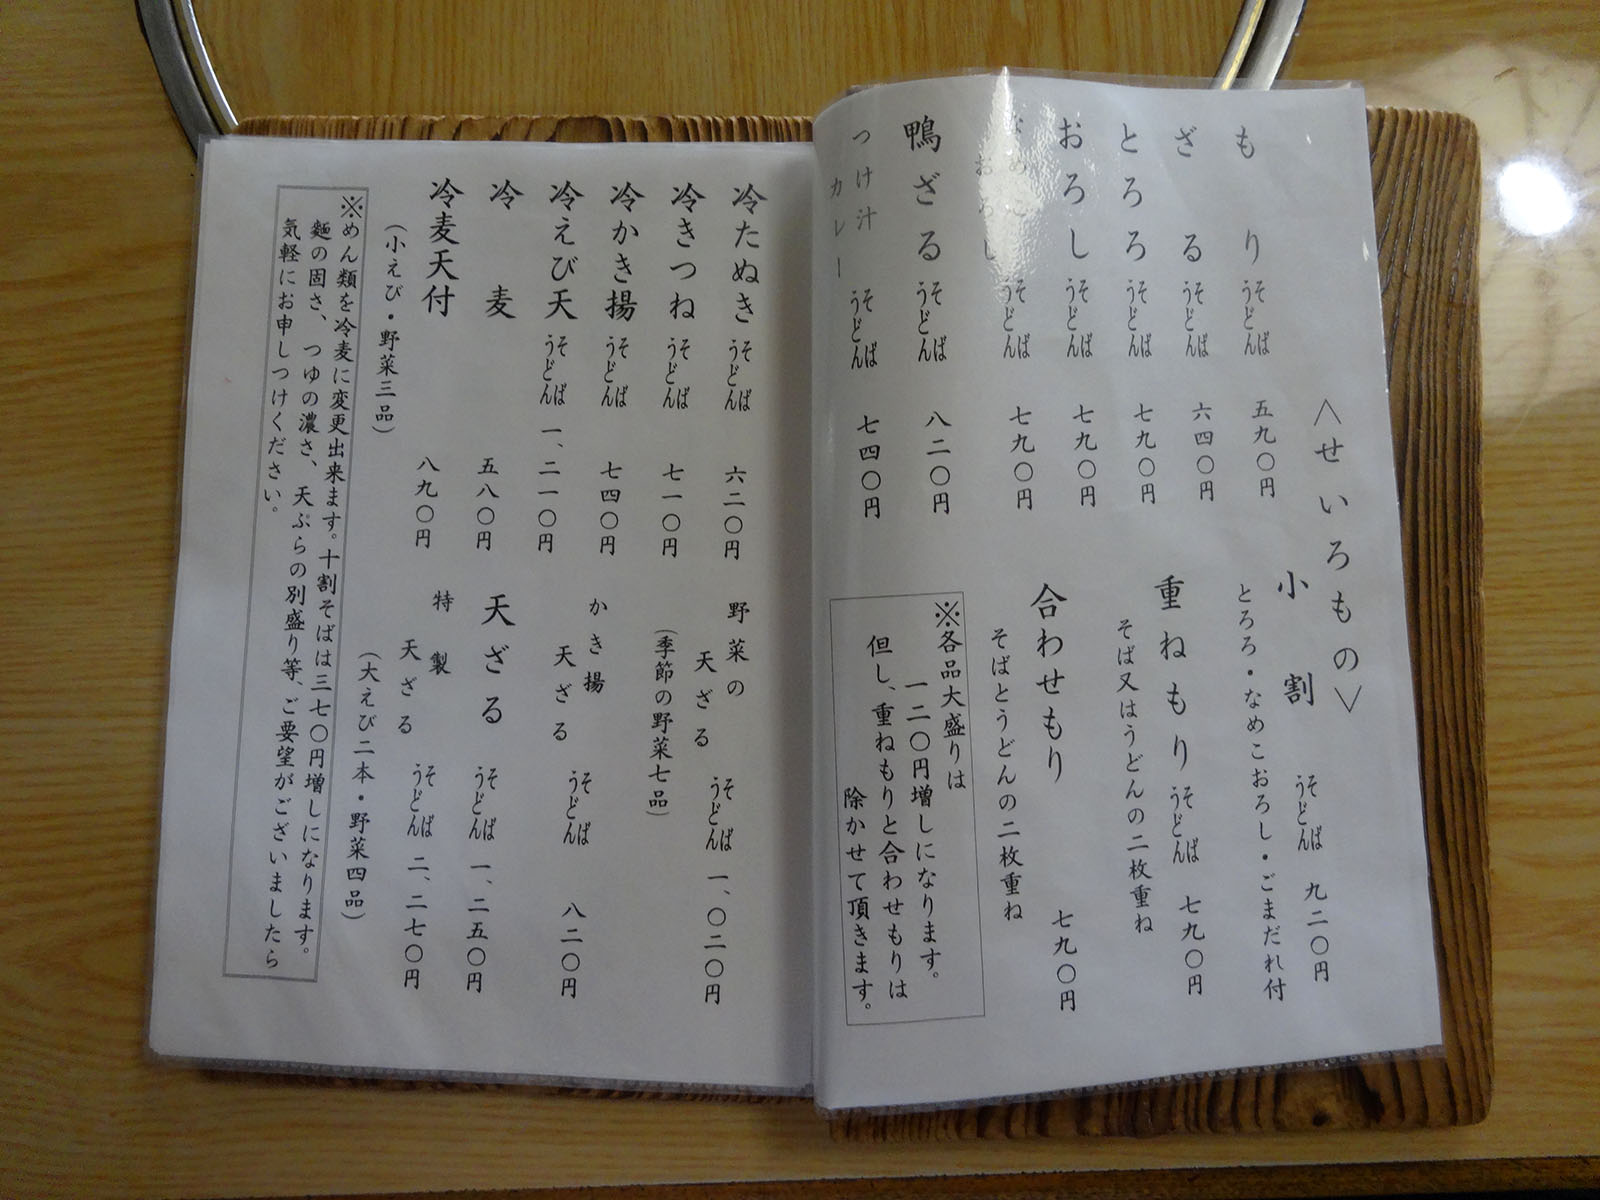 ＜せいろもの＞
もり そば うどん 五九〇円
ざる そば うどん 六四〇円
とろろ そば うどん 七九〇円
おろし そば うどん 七九〇円
なめこおろし そば うどん 七九〇円
鴨ざる そば うどん 八二〇円
つけ汁カレー そば うどん 七四〇円
小割 そば うどん 九二〇円
とろろ・なめこおろし・ごまだれ付
重ねもり そば うどん 七九〇円
そば又はうどんの二枚重ね
合わせもり 七九〇円
そばとうどんの二枚重ね
※各品大盛りは
一二〇円増しになります。
但し、重ねもりと合わせもりは
除かせて頂きます。
冷たぬき そば うどん 六二〇円
冷きつね そば うどん 七一〇円
冷かき揚 そば うどん 七四〇円
冷えび天 そば うどん 一、二一〇円
冷麦 五八〇円
冷麦天付 八九〇円
（小えび・野菜三品）
野菜の天ざる そば うどん 一、〇二〇円
（季節の野菜七品）
かき揚天ざる そば うどん 八二〇円
天ざる そば うどん 一、二五〇円
特製天ざる そば うどん 二、二七〇円
（大えび二本・野菜四品）
※めん類を冷麦に変更出来ます。十割そばは三七〇円増しになります。
麺の固さ、つゆの濃さ、天ぷらの別盛り等、ご要望がございましたら
気軽にお申しつけください。